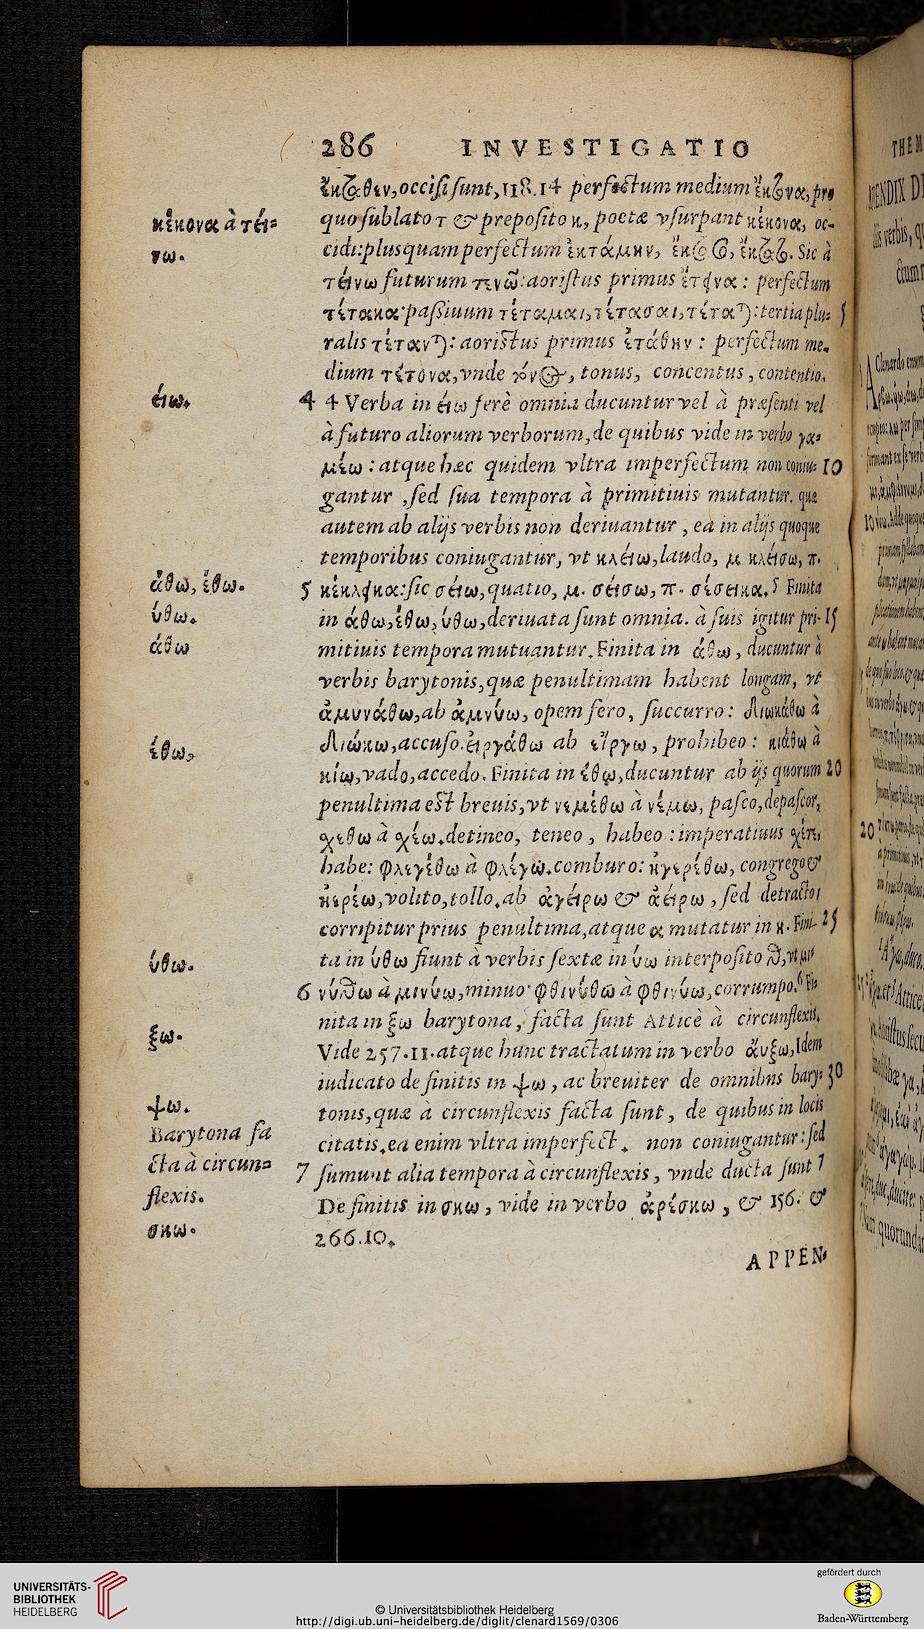 286 INVESTIGATIO
ἔκταθεν, occisi sunt, 118.14 perfectum medium ἔκτονα, pro
κέκονα à τεί=
quo sublato τ & preposito κ, poetæ vsurpant κέκονα, oc-
νω.
cidi: plusquamperfectum ἐκτάμην, Sic à
τείνω futurum τενῶ: aoristus primus ἔτεινα: perfectum
τέτακα· passiuum τέταμαι, τέτασαι, τέταται: tertia plu= 5
ralis τέτανται: aoristus primus ἐτάθην: perfectum me-
dium τέτονα, vnde τόνος, tonus, concentus, contentio.
είω.
4 4 Verba in είω ferè omnia ducuntur vel à præsenti vel
à futuro aliorum verborum, de quibus vide in verbo γα=
μέω: atque hæc quidem vltra imperfectum non coniu= 10
gantur, sed sua tempora à primitiuis mutantur. quæ
autem ab alijs verbis non deriuantur, ea in alijs quoque
temporibus coniugantur, vt κλείω, laudo, μ κλείσω, π.
άθω, έθω.
5 κέκλεικα: sic σείω, quatio, μ. σείσω, π. σέσεικα. 5 Finita
ύθω.
in άθω, έθω, ύθω, deriuata sunt omnia. à suis igitur pri- 15
άθω
mitiuis tempora mutuantur. Finita in άθω, ducuntur à
verbis barytonis, quæ penultimam habent longam, vt
ἀμυνάθω, ab ἀμύνω, opem fero, succurro: διωκάθω à
έθω,
διώκω, accuso. εἰργάθω ab εἴργω, prohibeo: κιάθω à
κίω, vado, accedo. Finita in έθω, ducuntur ab ijs quorum 20
penultima est breuis, vt νεμέθω à νέμω, pasco, depascor,
χεθω à χέω. detineo, teneo, habeo: imperatiuus
habe: φλεγέθω à φλέγω. comburo: ἠγερέθω, congrego &
ἠερέω, volito, tollo. ab ἀγείρω & ἀείρω, sed detracto ι
corripitur prius penultima, atque α mutatur in η. Fini- 25
ύθω.
ta in ύθω fiunt à verbis sextæ in ύω interposito θ, vt μι=
6 νύθω à μινύω, minuo· φθινύθω à φθινύω, corrumpo. 6 Fi=
nita in ξω barytona, facta sunt Atticè à circunflexis.
ξω.
Vide 257.11. atque hunc tractatum in verbo αὔξω, Idem
iudicato de finitis in ψω, ac breuiter de omnibus bary= 30
ψω.
tonis, quæ a circunflexis facta sunt, de quibus in locis
Barytona fa
citatis. ea enim vltra imperfect. non coniugantur: sed
cta à circun=
7 sumunt alia tempora à circunflexis, vnde ducta sunt 7
flexis.
De finitis in σκω, vide in verbo ἀρέσκω, & 156. &
σκω.
266.10.
APPEN-
THEM
20
UNIVERSITÄTS-
BIBLIOTHEK
HEIDELBERG
© Universitätsbibliothek Heidelberg
http://digi.ub.uni-heidelberg.de/diglit/clenard1569/0306
gefördert durch
Baden-Württemberg